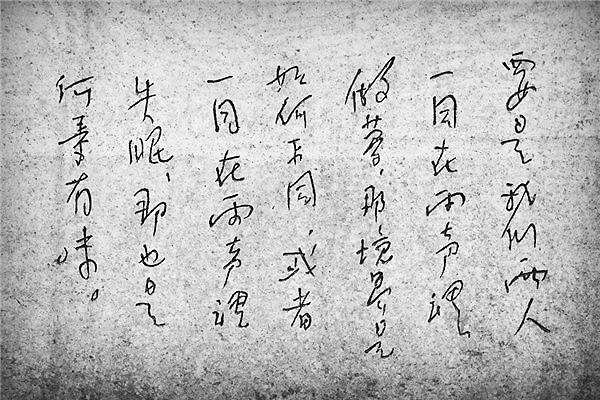 要是我们两人
一同在雨声裡
做夢,那境界是
如何不同,或者
一同在雨声裡
失眠,那也是
何等有味。